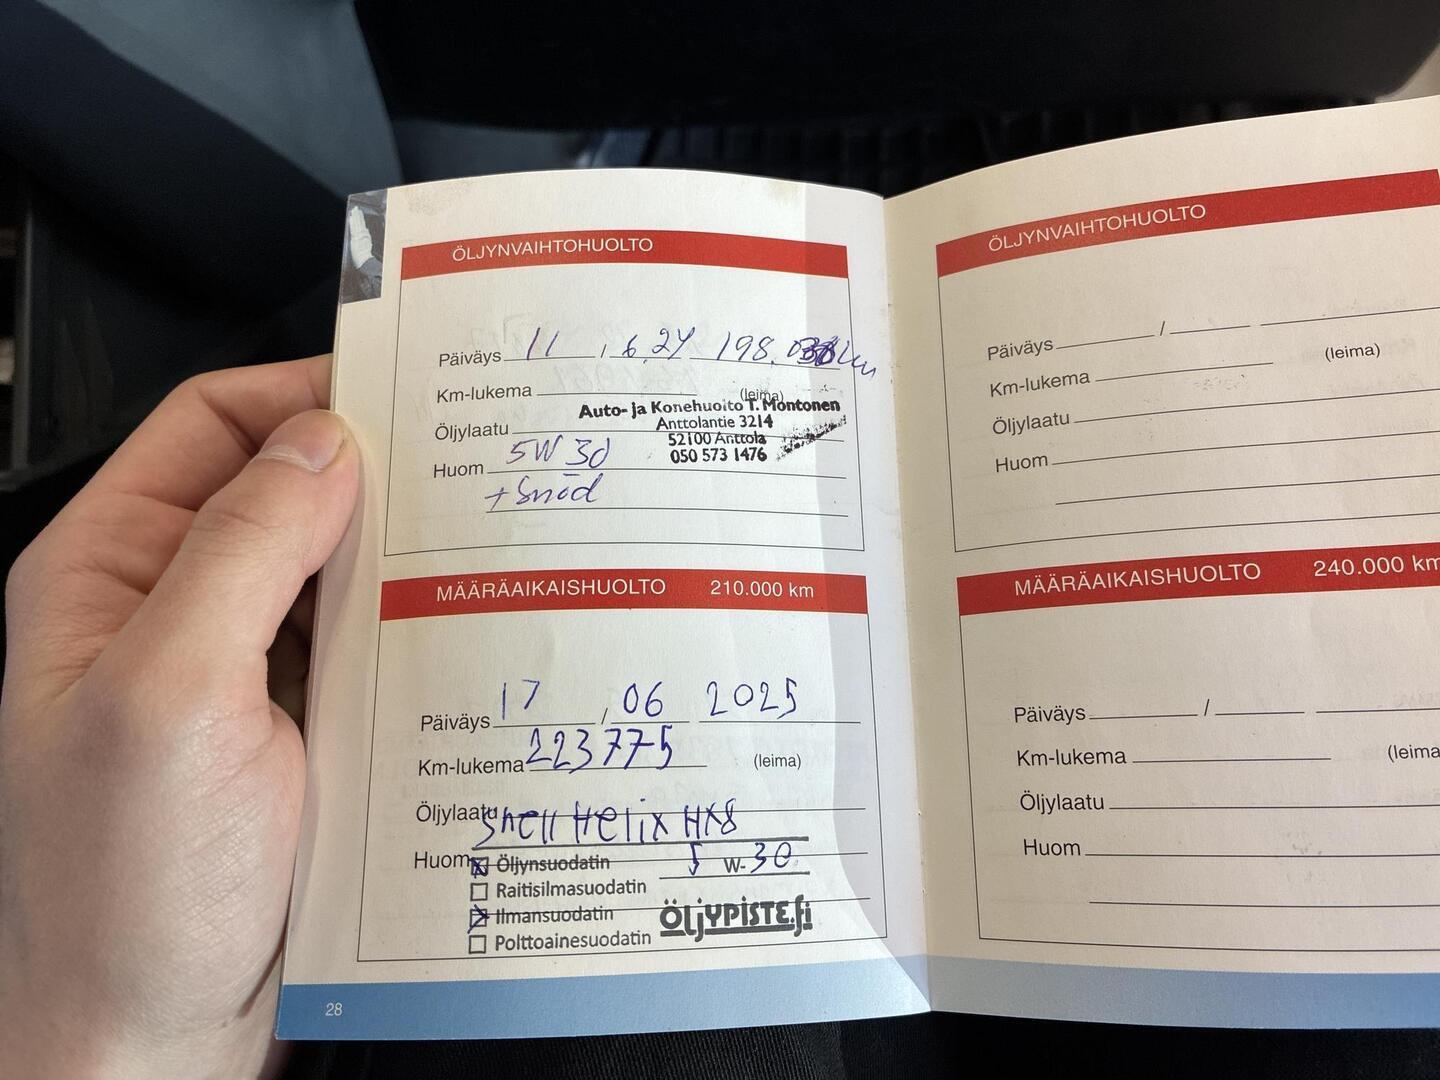 ÖLJYNVAIHTOHUOLTO
Päiväys 11 / 6.24 198.
Km-lukema (leima)
Auto- ja Konehuolto T. Montonen
Anttolantie 3214
Öljylaatu
52100 Anttola
Huom 5W 30
050 573 1476
MÄÄRÄAIKAISHUOLTO 210.000 km
Päiväys 17 / 06 2025
Km-lukema 223775 (leima)
Öljylaatu Shell Helix HX8
Huom
Öljynsuodatin 5 W-30
Raitisilmasuodatin
Ilmansuodatin
ÖljYPISTE.fi
Polttoainesuodatin
28
ÖLJYNVAIHTOHUOLTO
Päiväys /
Km-lukema (leima)
Öljylaatu
Huom
MÄÄRÄAIKAISHUOLTO 240.000 km
Päiväys /
Km-lukema (leima
Öljylaatu
Huom